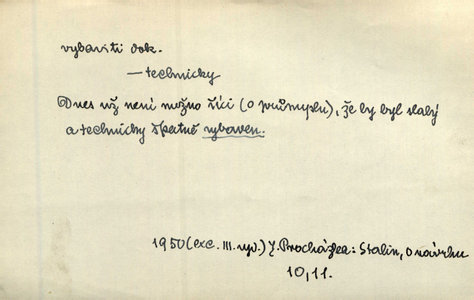 vybaviti dok.
— technicky
Dnes už není možno říci (o průmyslu), že by byl slabý
a technicky špatně vybaven.
1950 (exc. III. vyd.) J. Procházka: Stalin, O návrhu
10, 11.